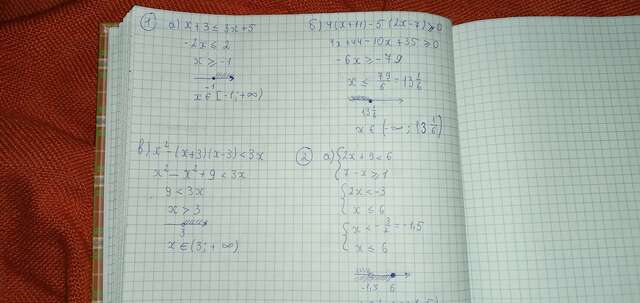 1 а) x+3 ≤ 3x+5
-2x ≤ 2
x ≥ -1
-1
x ∈ [-1; +∞)
б) 4(x+11)-5(2x-7) ≥ 0
4x+44-10x+35 ≥ 0
-6x ≥ -79
x ≤ 79/6 = 13 1/6
13 1/6
x ∈ (-∞; 13 1/6]
в) x² - (x+3)(x-3) < 3x
x² - x² + 9 < 3x
9 < 3x
x > 3
3
x ∈ (3; +∞)
2 а) { 2x+9 < 6
7-x ≥ 1
{ 2x < -3
x ≤ 6
{ x < -3/2 = -1,5
x ≤ 6
-1,5 6